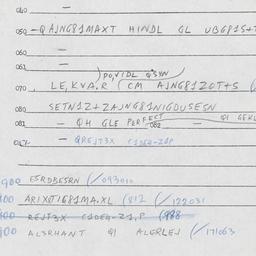 040 —
050 — QAJNG81MAXT HINDL GL UBG81S+T
060 —
061 PO,VIDL Q3SN
070 LE,KVA,R (CM AJNG81ZOT+S
080 SETN1Z+ZAJNG81NIGDUSESN
081 — QH GLE PERFECT 082 — QI GEKL
— QREJT3X C1DEH-Z1P
900 ESRDBESRN (/093010
ARIXOTIG81MA,XL (812 /122031
REJT3X C1DEH-Z1,P (988
AL3RHANT QI ALERLEJ (/171063